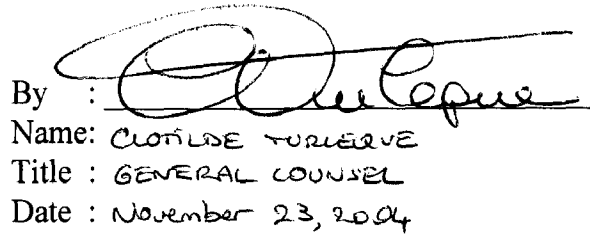 By :
Name: CLOTILDE TURLEQUE
Title : GENERAL COUNSEL
Date : November 23, 2004